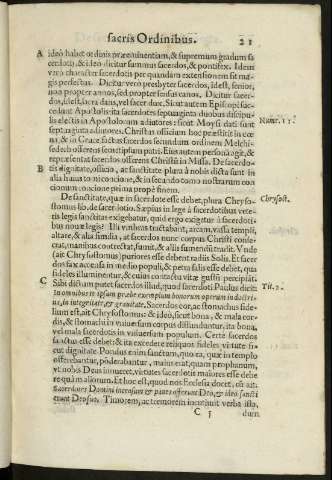 sacris Ordinibus. 21
A ideò habet ordinis præeminentiam, & supremum gradum sa
cerdotij, & ideò dicitur summus sacerdos, & pontifex. Idem
verò character sacerdotis per quandam extensionem fit ma-
gis perfectus. Dicitur verò presbyter sacerdos, idest, senior,
non propter annos, sed propter sensus canos. Dicitur sacer-
dos, idest, sacra dans, vel sacer dux. Sicut autem Episcopi suc-
cedunt Apostolis: ita sacerdotes septuaginta duobus discipu-
lis electis in Apostolorum adiutores: sicut Moysi dati sunt
septuaginta adiutores. Christus officium hoc præstitit in cœ
na, & in Cruce factus sacerdos secundum ordinem Melchi-
sedech offerens semetipsum patri. Eius autem personã agit, &
repræsentat sacerdos offerens Christũ in Missa. De sacerdo-
B tis dignitate, officio, ac sanctitate plura à nobis dicta sunt in
alia huius tomo concione, & in secundo tomo nostrarum con
cionum concione prima propè finem.
De sanctitate, quæ in sacerdote esse debet, plura Chryso-
stomus lib. de sacerdotio. Sæpius in lege à sacerdotibus vete-
tis legis sanctitas exigebatur, quid ergo exigetur à sacerdoti-
bus nouæ legis? Illi vitulos tractabant, arcam, vasa templi,
altare, & alia similia, at sacerdos nunc corpus Christi conse-
crat, manibus contrectat, sumit, & alijs sumendũ tradit. Vnde
(ait Chrysostomus) puriores esse debent radijs Solis. Et sacer
dos fax accensa in medio populi, & petra salis esse debet, qua
fideles illuminentur, & cuius contactu vitæ gustũ percipiãt.
C Sibi dictum putet sacerdos illud, quod sacerdoti Paulus dicit
In omnibus te ipsum præbe exemplum bonorum operum in doctri-
na, in integritate, & grauitate. Sacerdos cor, ac stomachus fide-
lium est, ait Chrysostomus: & ideò, sicut bona, & mala cor-
dis, & stomachi in vniuersum corpus diffunduntur, ita bona,
vel mala sacerdotis in vniuersum populum. Certe sacerdos
sanctus esse debet: & ita excedere reliquos fideles virtute si-
cut dignitate. Pondus enim sanctum, quo ea, quæ in templo
offerebantur, põderabantur, maius erat, quam prophanum,
vt nobis Deus innueret, virtutes sacerdotis maiores esse debe
re quàm aliorum. Et hoc est, quod nos Ecclesia docet, vbi ait.
Sacerdotes Domini incensum & panes offerunt Deo, & ideo sancti
erunt Deo suo. Timorem, ac tremorem incutiunt verba ista,
C 3 dum
Num. 11.
Chrysost.
Tit. 2.